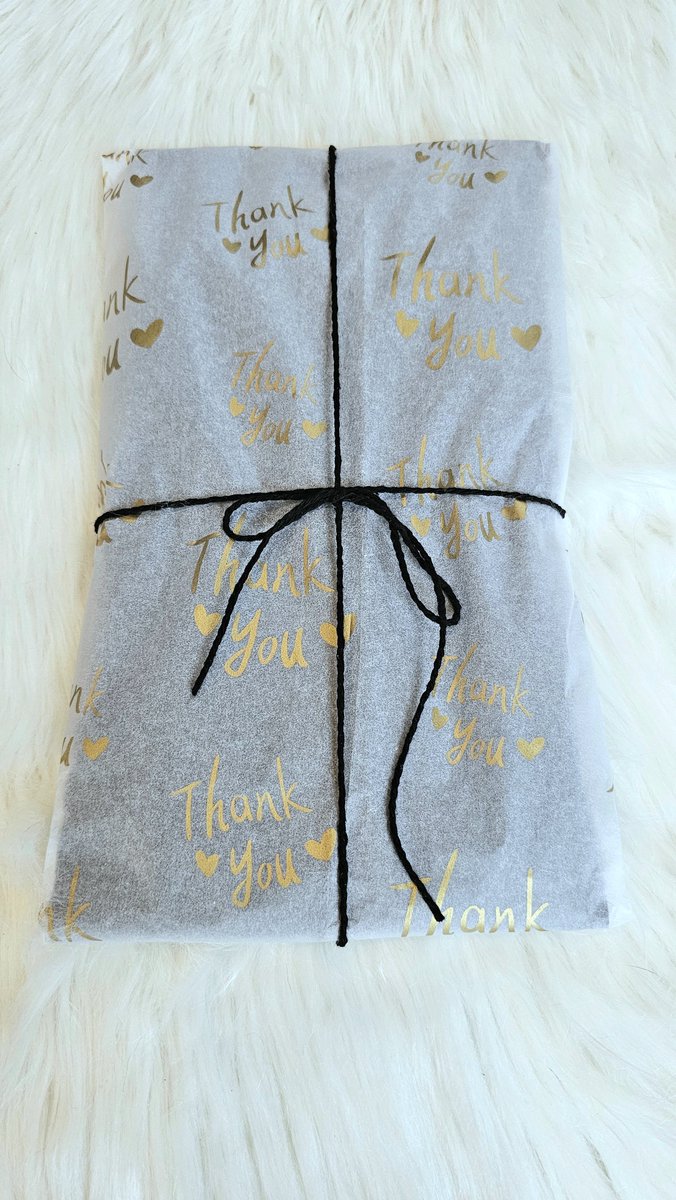 ank
ou
Thank
You
Thank
You
Thank
You
ank
ou
Thank
You
Thank
You
Thank
You
Thank
You
nk
u
Thank
You
Thank
nk